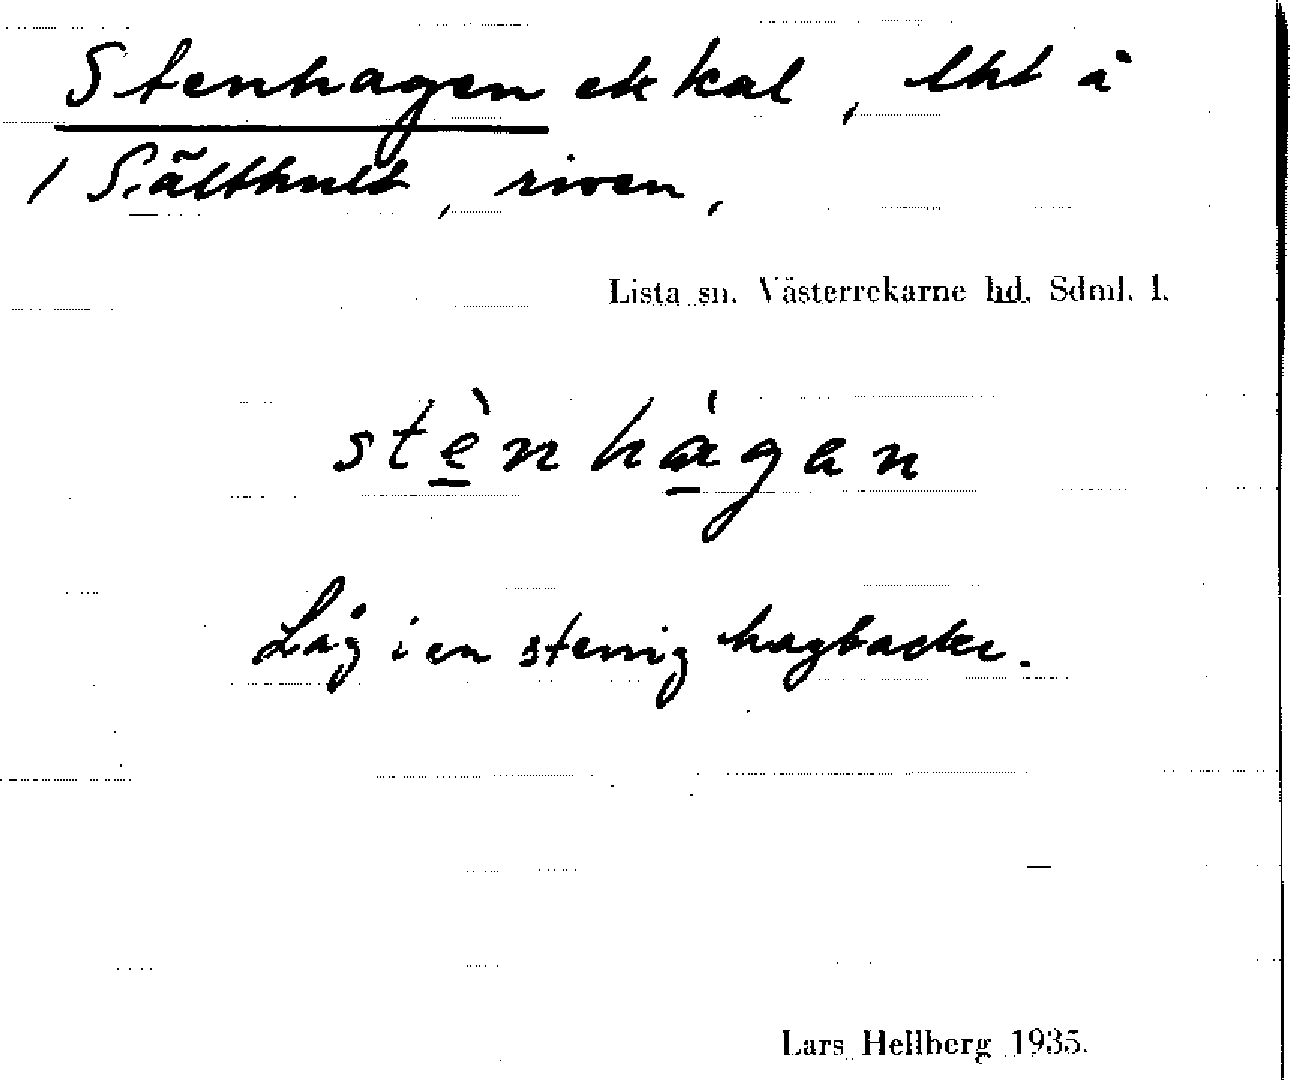 Stenhagen ek kal, lht å
/ Sälthult, riven,
Lista sn. Västerrekarne hd. Sdml. l.
stènhágan
Låg i en stenig hagbacke.
Lars Hellberg 1935.